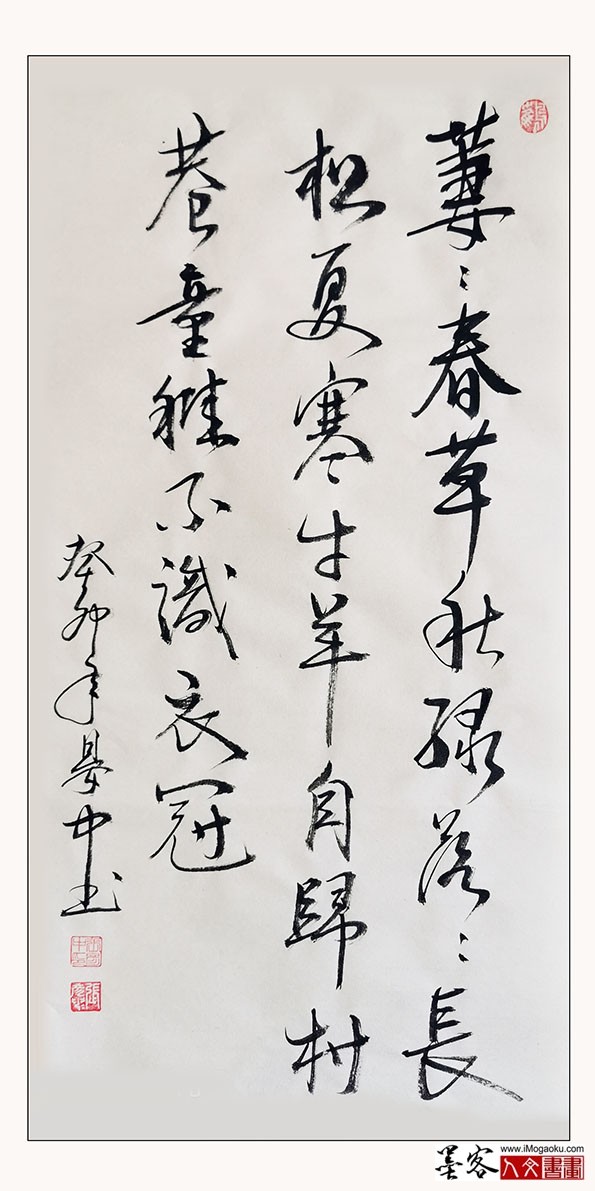 萋〻春草秋绿落〻長
松夏寒牛羊自歸村
巷童稚不識衣冠
癸卯年中书
墨客
www.iMogaoku.com
人文書畫